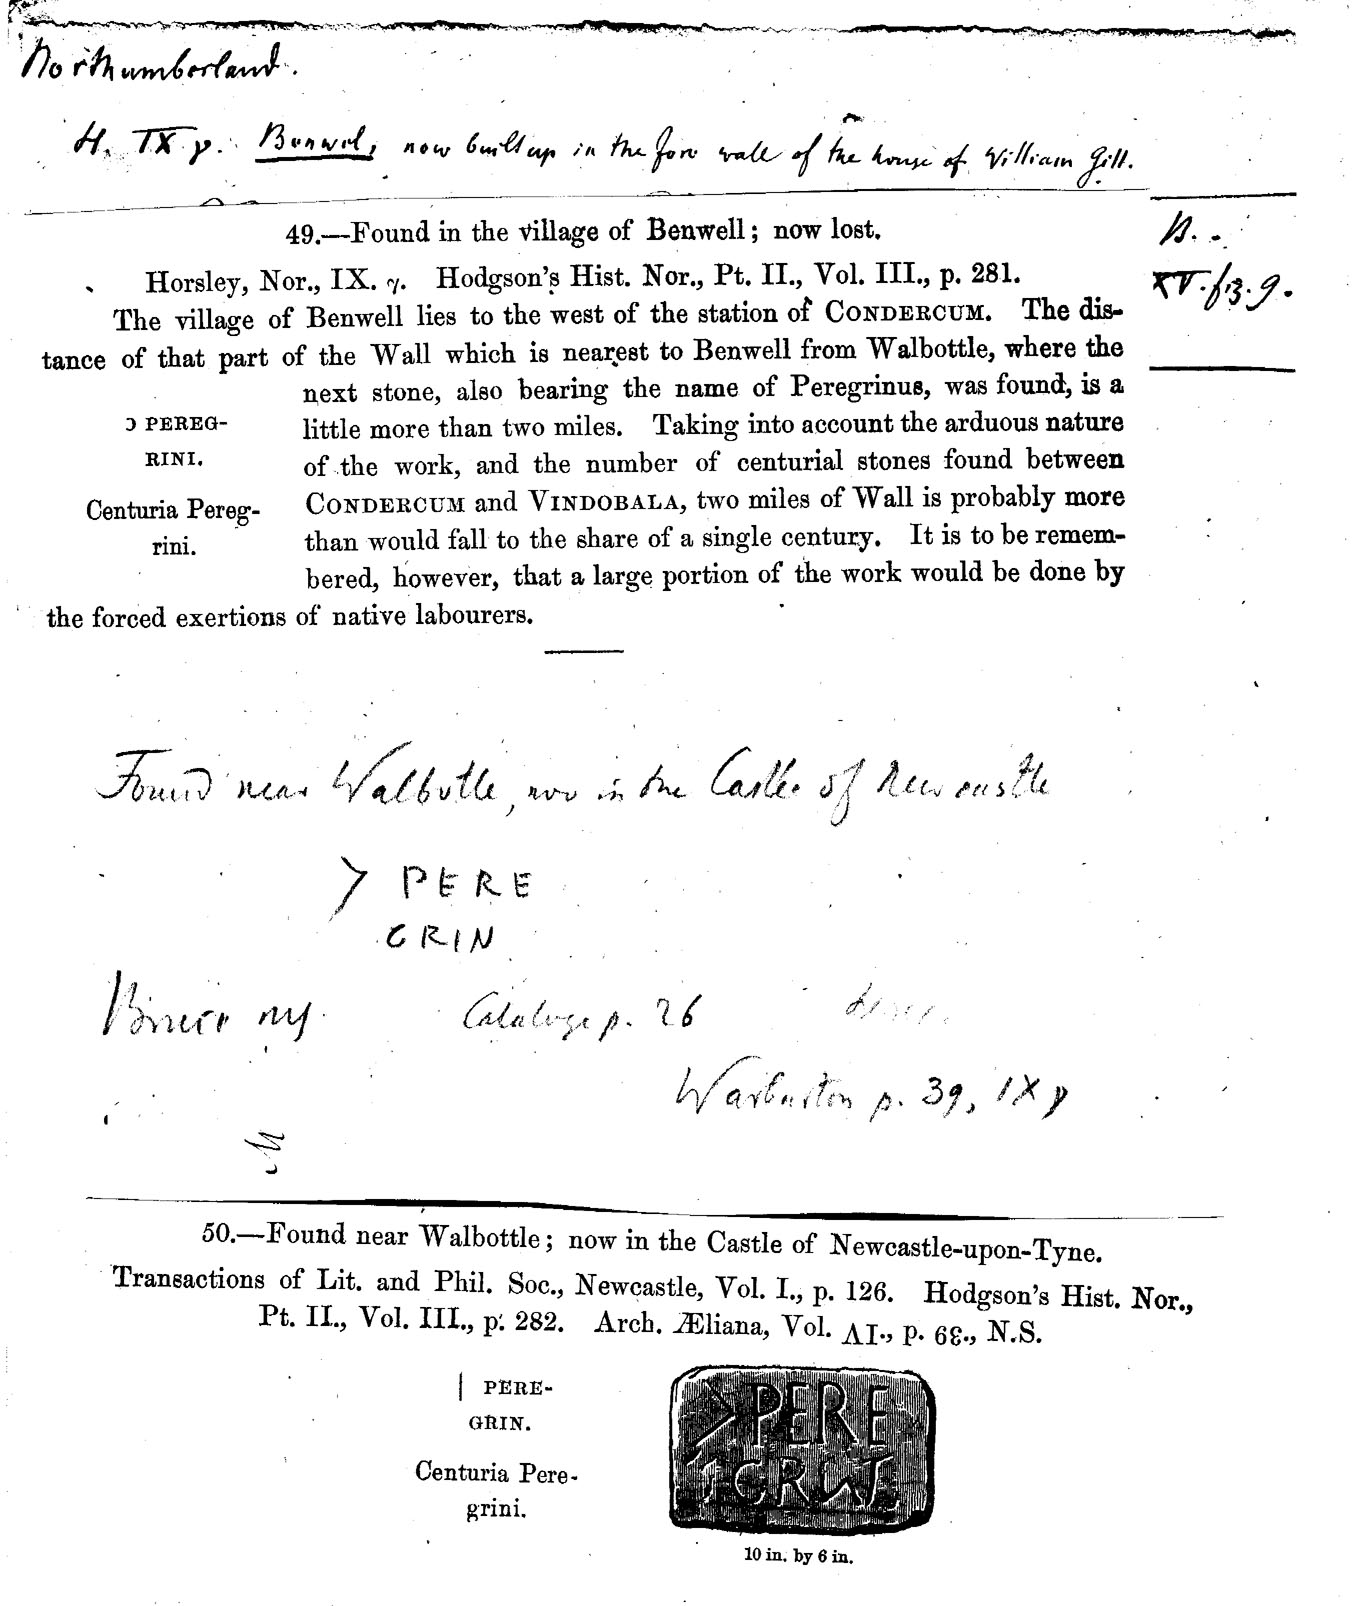 Northumberland.
H. IX γ. Benwel, now built up in the fore wall of the house of William Gill.
49.—Found in the village of Benwell; now lost.
Horsley, Nor., IX. γ. Hodgson's Hist. Nor., Pt. II., Vol. III., p. 281.
The village of Benwell lies to the west of the station of CONDERCUM. The dis-
tance of that part of the Wall which is nearest to Benwell from Walbottle, where the
next stone, also bearing the name of Peregrinus, was found, is a
little more than two miles. Taking into account the arduous nature
of the work, and the number of centurial stones found between
CONDERCUM and VINDOBALA, two miles of Wall is probably more
than would fall to the share of a single century. It is to be remem-
bered, however, that a large portion of the work would be done by
the forced exertions of native labourers.
Ɔ PEREG-
RINI.
Centuria Pereg-
rini.
XV. f.
Found near Walbottle, now in the Castle of Newcastle
> PERE
GRIN
Bruce
Cataloge p. 26
Warburton p. 39, IX γ
50.—Found near Walbottle; now in the Castle of Newcastle-upon-Tyne.
Transactions of Lit. and Phil. Soc., Newcastle, Vol. I., p. 126. Hodgson's Hist. Nor.,
Pt. II., Vol. III., p. 282. Arch. Æliana, Vol. VI., p. 63., N.S.
| PERE-
GRIN.
Centuria Pere-
grini.
>PERE
GRIN
10 in. by 6 in.